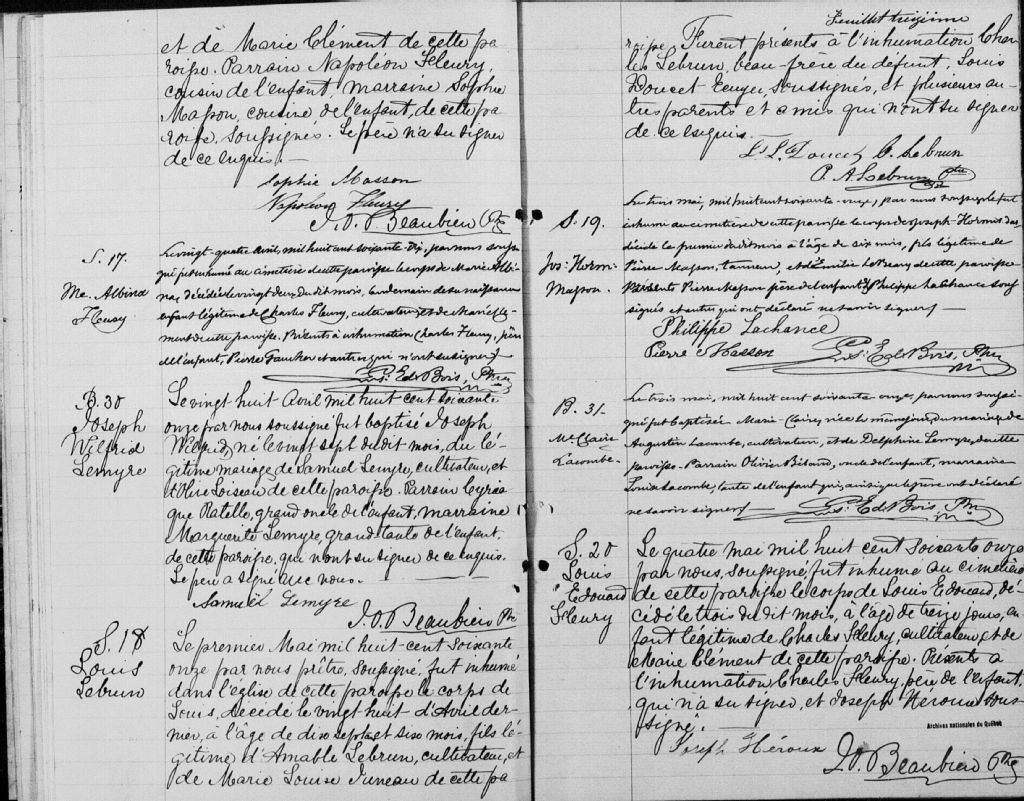 et de Marie Clément de cette pa
roisse. Parrain Napoléon Fleury,
cousin de l'enfant, marraine Sophie
Masson, cousine de l'enfant, de cette pa
roisse, soussignés. Le père n'a su signer
de ce enquis. —
Sophie Masson
Napoléon Fleury
J. O. Beaubien Ptre
S. 17.
Me. Albina
Fleury
Le vingt-quatre avril, mil huit cent soixante-dix, par nous soussi
gné fut inhumé au cimetière de cette paroisse le corps de Marie Albi-
na, décédée le vingt deux du dit mois, lendemain de sa naissance
enfant légitime de Charles Fleury, cultivateur, et de Marie Clé-
ment de cette paroisse. Présents à inhumation Charles Fleury, père
de l'enfant, Pierre Faucher et autres qui n'ont su signer
Ed. Bois, Ptre
B. 30
Joseph
Wilfrid
Lemyre
Le vingt huit Avril mil huit cent soixante
onze par nous soussigné fut baptisé Joseph
Wilfrid, né le vingt sept du dit mois, du lé-
gitime mariage de Samuel Lemyre, cultivateur, et
d'Olive Loiseau de cette paroisse. Parrain Cyria
que Ratelle, grand oncle de l'enfant, marraine
Marguerite Lemyre, grand tante de l'enfant,
de cette paroisse, qui n'ont su signer de ce enquis.
Le père a signé avec nous.
Samuel Lemyre
J. O. Beaubien Ptre
S. 18
Louis
Lebrun
Le premier Mai mil huit-cent soixante
onze par nous prêtre, soussigné, fut inhumé
dans l'église de cette paroisse le corps de
Louis, décédé le vingt huit d'Avril der-
nier, à l'âge de dix sept ans et six mois, fils lé
gitime d'Amable Lebrun, cultivateur, et
de Marie Louise Juneau de cette pa
Feuillet treizième
roisse. Furent présents à l'inhumation Char
les Lebrun, beau-frère du défunt, Louis
Doucet Ecuyer, soussignés, et plusieurs au-
tres parents et amis qui n'ont su signer
de ce enquis.
Ls. L. Doucet C. Lebrun
P. A. Lebrun Ptre
S. 19.
Jos: Horm:
Masson.
Le trois mai, mil huit cent soixante-onze, par nous soussigné fut
inhumé au cimetière de cette paroisse le corps de Joseph-Hormisdas,
décédé le premier du dit mois à l'âge de six mois, fils légitime de
Pierre Masson, tanneur, et d'Emilie de cette paroisse
Présents Pierre Masson père de l'enfant, Philippe Lachance sous
signés et autres qui ont déclaré ne savoir signer
Philippe Lachance
Pierre Masson
Ed. Bois, Ptre
B. 31.
Me Claire
Lacombe.
Le trois mai, mil huit cent soixante onze, par nous soussi-
gné fut baptisée Marie-Claire, née le même jour, du mariage de
Augustin Lacombe, cultivateur, et de Delphine Lemyre, de cette
paroisse. Parrain Olivier, oncle de l'enfant, marraine
Louise Lacombe, tante de l'enfant qui, ainsi que le père ont déclaré
ne savoir signer
Ed. Bois, Ptre
S. 20
Louis
Edouard
Fleury
Le quatre mai mil huit cent soixante onze
par nous, soussigné, fut inhumé au cimetière
de cette paroisse le corps de Louis Edouard, dé-
cédé le trois du dit mois, à l'âge de treize jours, en
fant légitime de Charles Fleury, cultivateur, et de
Marie Clément de cette paroisse. Présents à
l'inhumation, Charles Fleury, père de l'enfant,
qui n'a su signer, et Joseph Héroux sous-
signé.
Archives nationales du Québec
Joseph Héroux
J. O. Beaubien Ptre